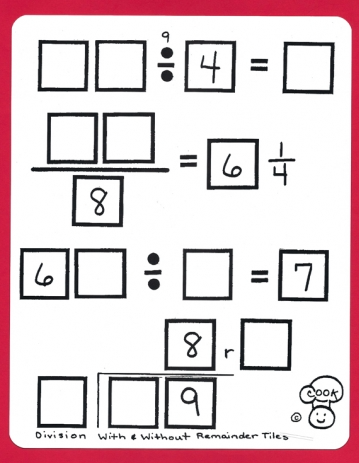 9
÷ 4 =
8 = 6 1/4
6 ÷ = 7
8 r
9
COOK
©
Division With & Without Remainder Tiles